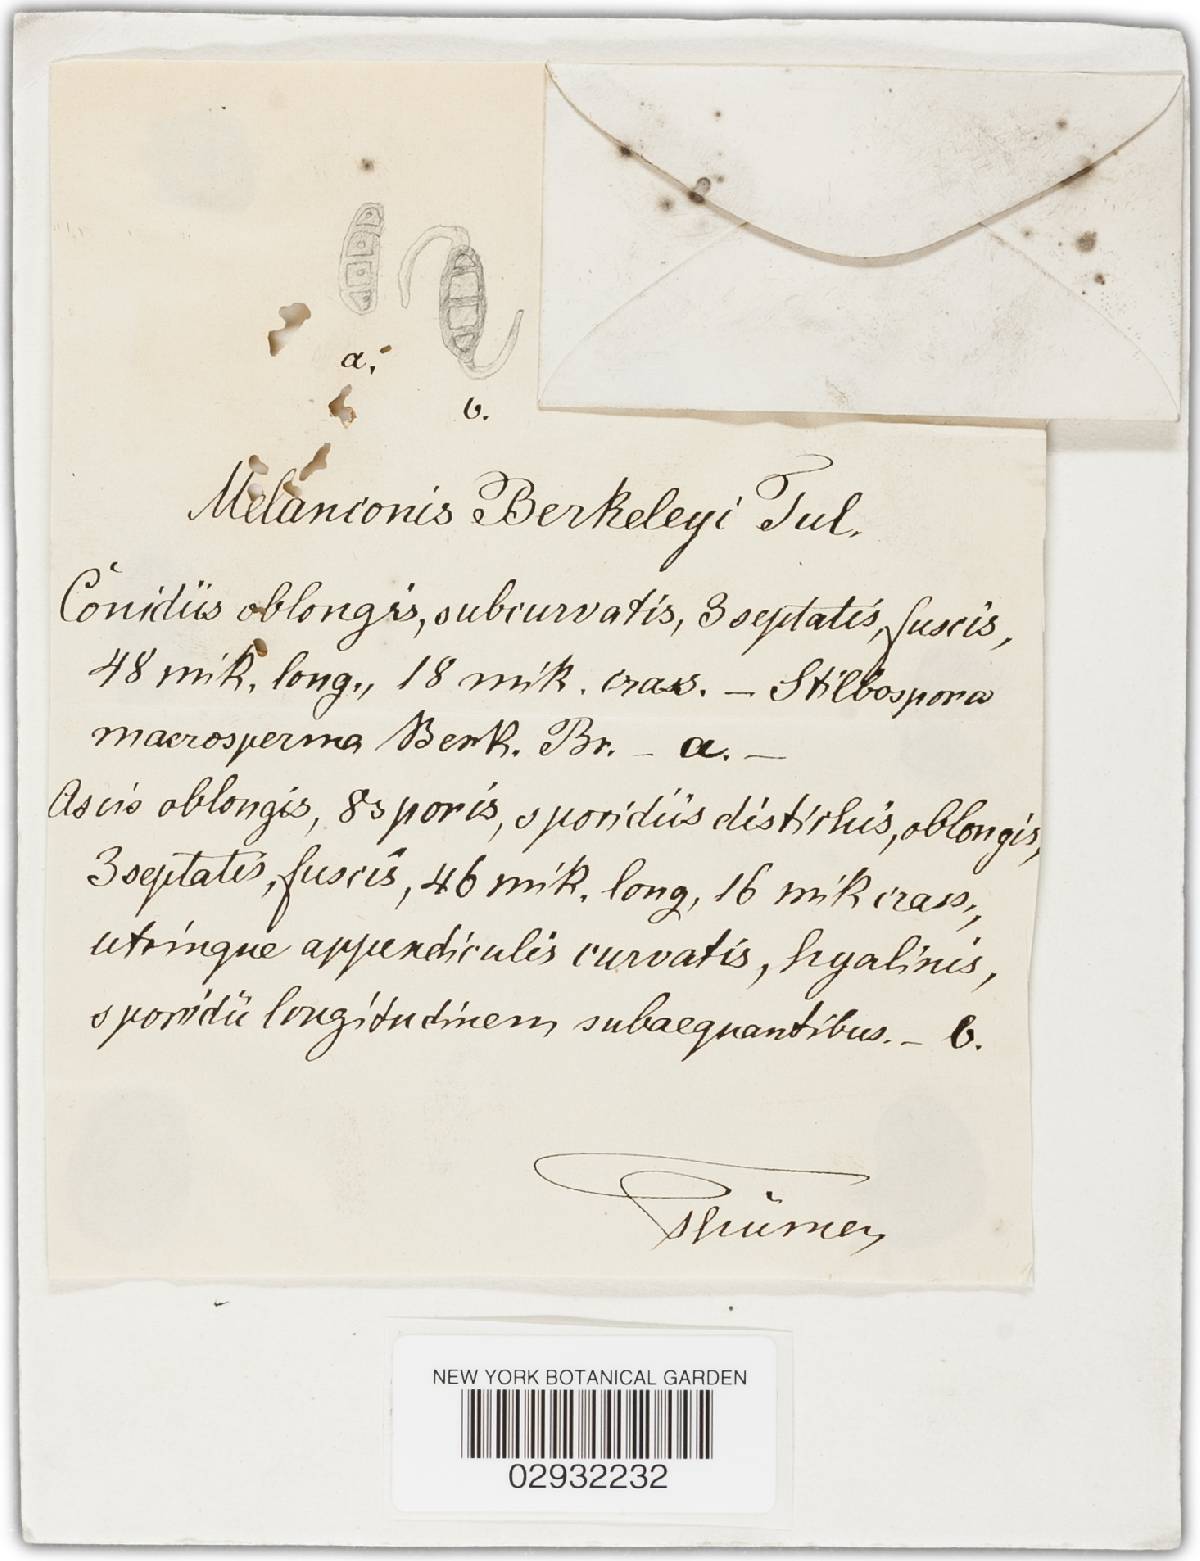 a.
b.
Melanconis Berkeleyi Tul.
Conidiis oblongis, subcurvatis, 3 septatis, fuscis,
48 mik. long., 18 mik. crass. – Stilbospora
macrosperma Berk. Br. – a. –
Ascis oblongis, 8 sporis, sporidiis distichis, oblongis,
3 septatis, fuscis, 46 mik. long, 16 mik crass.,
utrinque appendiculis curvatis, hyalinis,
sporidii longitudinem subaequantibus. – b.
Thümen
NEW YORK BOTANICAL GARDEN
02932232